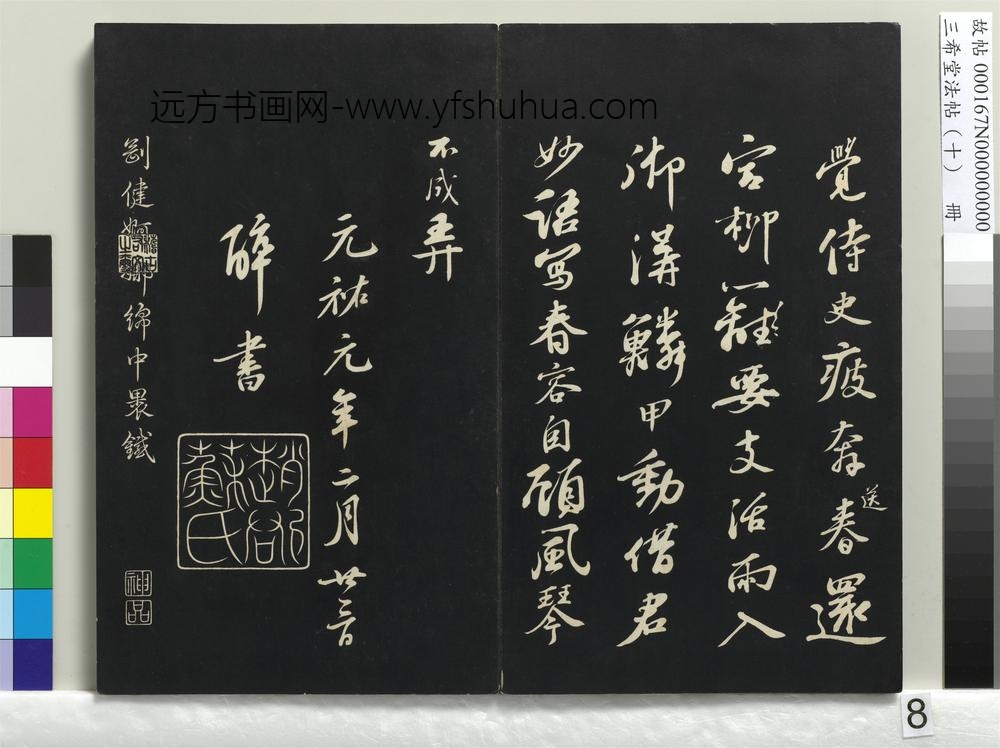 故帖 000167N000000000
三希堂法帖（十） 冊
远方书画网-www.yfshuhua.com
覺侍史疲奔送春還
宮柳要支活雨入
御溝鱗甲動借君
妙語寫春容自顧風琴
不成弄
元祐元年二月廿三日
醉書
趙郡蘇氏
剛健婀娜綿中裹鐵
神品
8